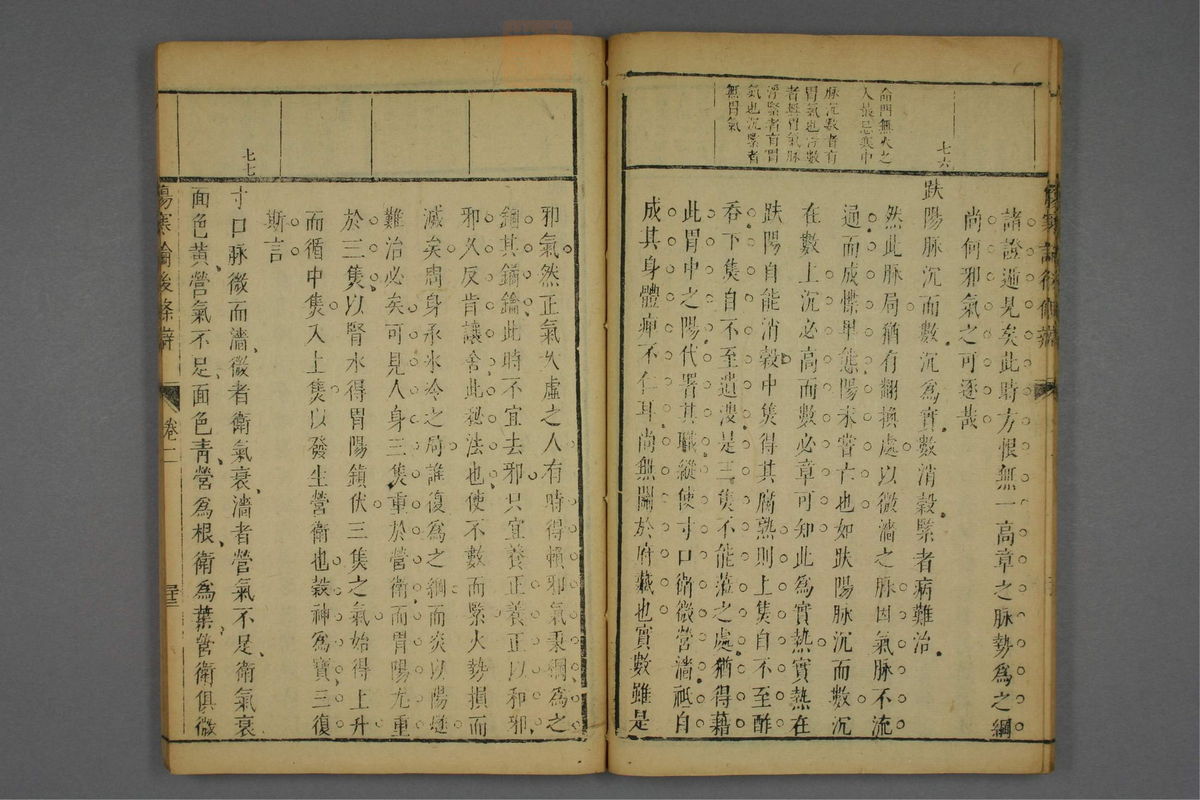 命門無火之
人最忌寒中
脉沉數者有
胃氣也浮數
者無胃氣脉
浮緊者有胃
氣也沉緊者
無胃氣
七六
諸證遞見矣此時方恨無一高章之脉勢爲之綱
尚何邪氣之可逐哉
趺陽脉沉而數沉爲實數消穀緊者病難治
然此脉局猶有翻換處以微濇之脉因氣脉不流
通而成慄卑態陽未嘗亡也如趺陽脉沉而數沉
在數上沉必高而數必章可知此爲實熱實熱在
趺陽自能消穀中焦得其腐熟則上焦自不至酢
吞下焦自不至遺溲是三焦不能蒞之處猶得藉
此胃中之陽代署其職縱使寸口衛微營濇祇自
成其身體痺不仁耳尚無關於府藏也實數雖是
邪氣然正氣久虛之人有時得賴邪氣秉綱爲之
鋼其鎖鑰此時不宜去邪只宜養正養正以和邪
邪久反肯讓舍此秘法也使不數而緊火勢損而
滅矣周身承氷冷之局誰復爲之綱而炎以陽燧
難治必矣可見人身三焦重於營衛而胃陽尤重
於三焦以腎水得胃陽鎮伏三焦之氣始得上升
而循中焦入上焦以發生營衛也穀神爲寶三復
斯言
七七
寸口脉微而濇微者衛氣衰濇者營氣不足衛氣衰
面色黃營氣不足面色青營爲根衛爲葉營衛俱微
傷寒論後條辯
卷二